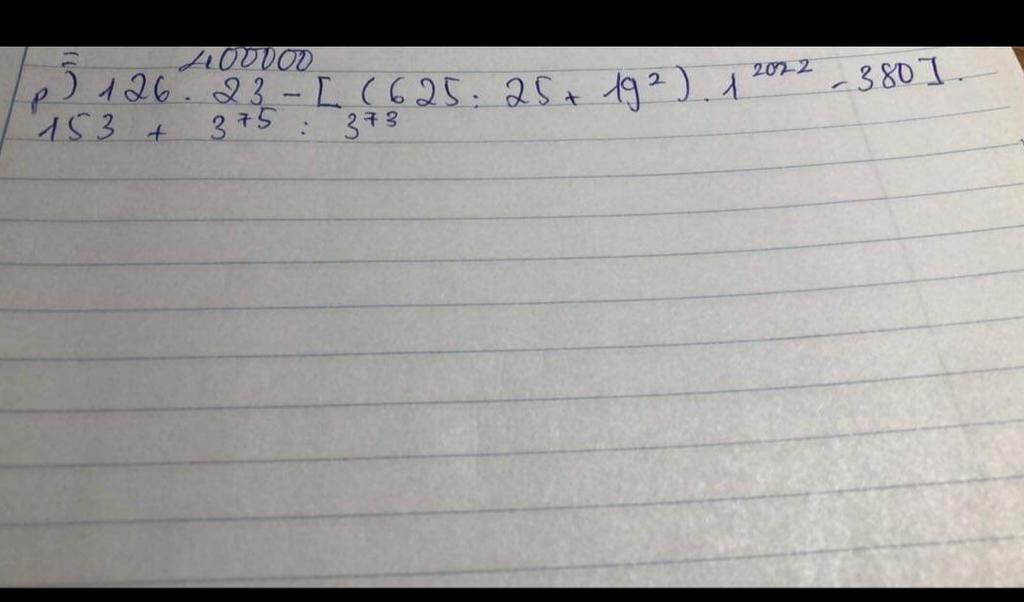 = 400000
p) 126 . 23 - [ ( 625 : 25 + 19² ) . 1²⁰²² - 380 ] .
153 + 3⁷⁵ : 3⁷³